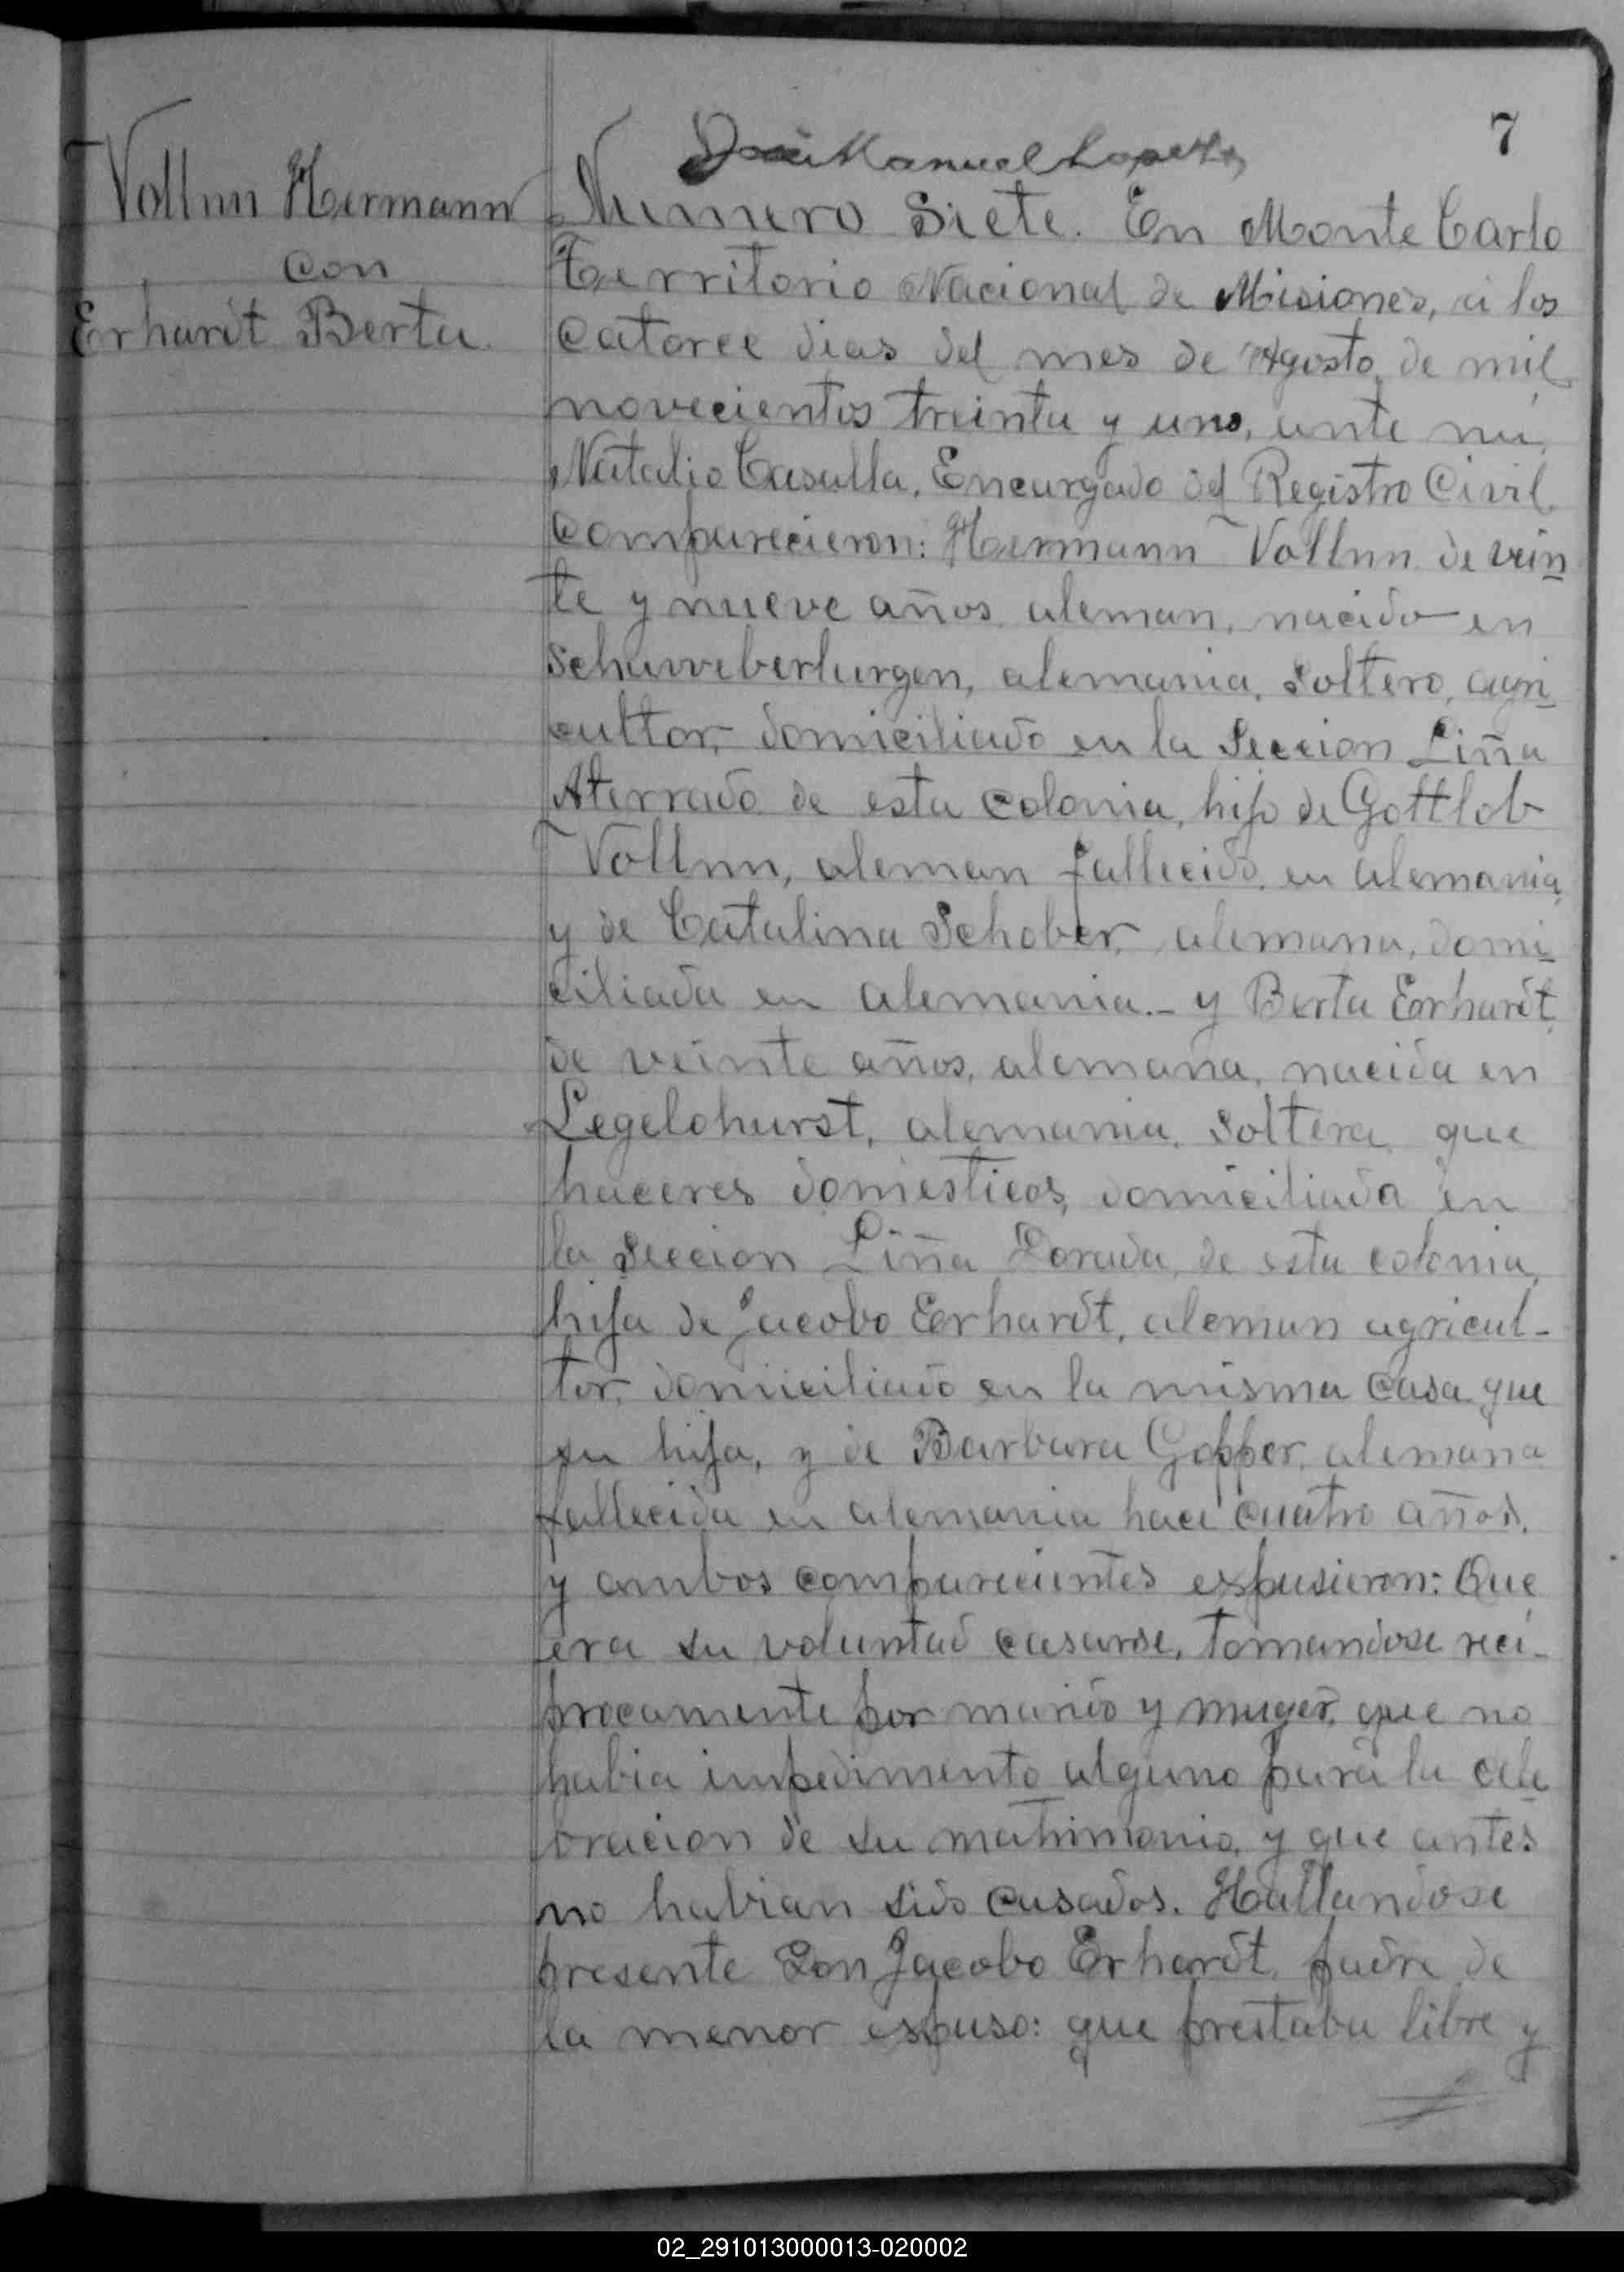 7
José Manuel Lopez
Vollnn Hermann
con
Erhardt Berta
Numero Siete. En Monte Carlo
Territorio Nacional de Misiones, a los
catorce dias del mes de Agosto de mil
novecientos treinta y uno, ante mi,
Natalio Casulla, Encargado del Registro Civil
comparecieron: Hermann Vollnn de vein
te y nueve años, aleman, nacido en
alemania, soltero, agri
cultor, domiciliado en la Seccion Liña
Aterrado de esta colonia, hijo de Gottlob
Vollnn, aleman fallecido en alemania
y de Catalina Schober, alemana, domi
ciliada en alemania.- y Berta Erhardt
de veinte años, alemana, nacida en
Legelshurst, alemania, soltera que
haceres domesticos, domiciliada en
la Seccion Liña Dorada, de esta colonia,
hija de Jacobo Erhardt, aleman agricul-
tor, domiciliado en la misma casa que
su hija, y de Barbara Gopper, alemana
fallecida en alemania hace cuatro años.
y ambos comparecientes expusieron: Que
era su voluntad casarse, tomandose reci-
procamente por marido y muger, que no
habia impedimento alguno para la cele
bracion de su matrimonio, y que antes
no habian sido casados. Hallandose
presente Don Jacobo Erhardt, padre de
la menor espuso: que prestaba libre y
02_291013000013-020002